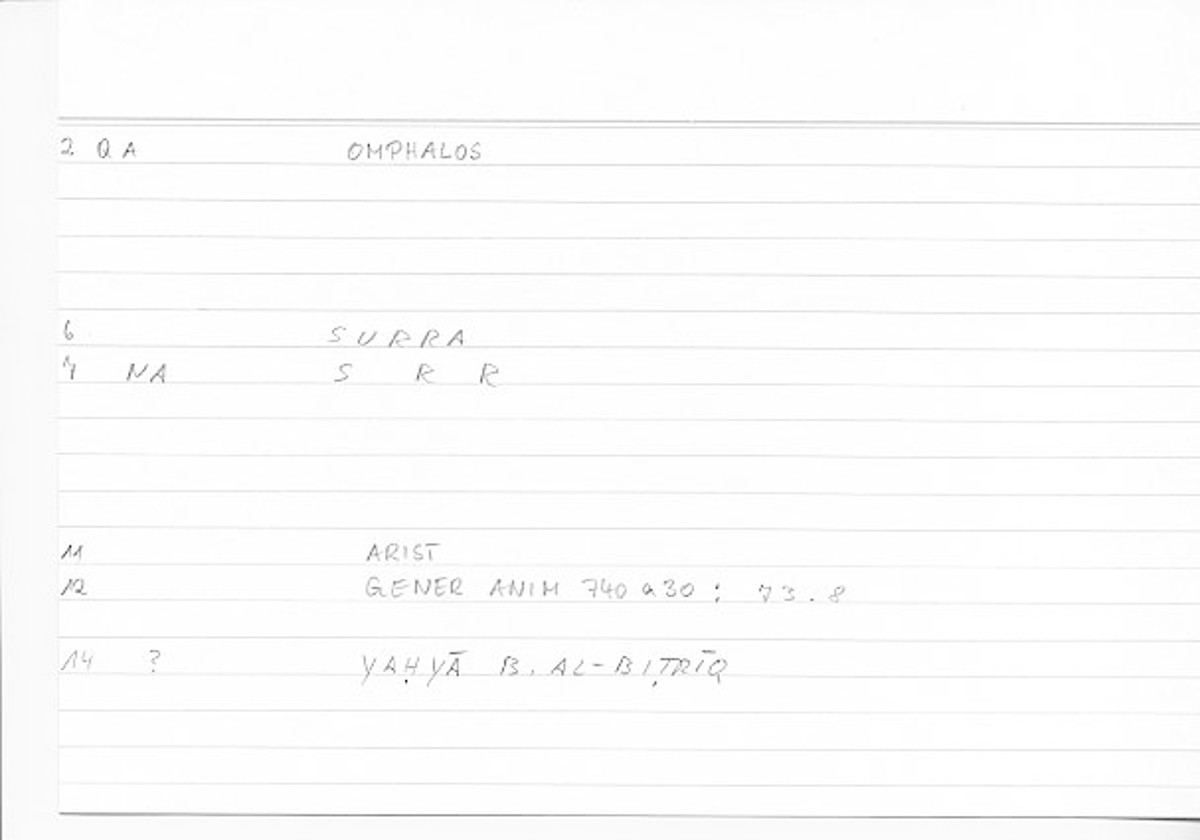 2 Q A OMPHALOS
6 SURRA
7 NA S R R
11 ARIST
12 GENER ANIM 740 a 30 : 73.8
14 ? YAḤYĀ B. AL-BIṬRĪQ